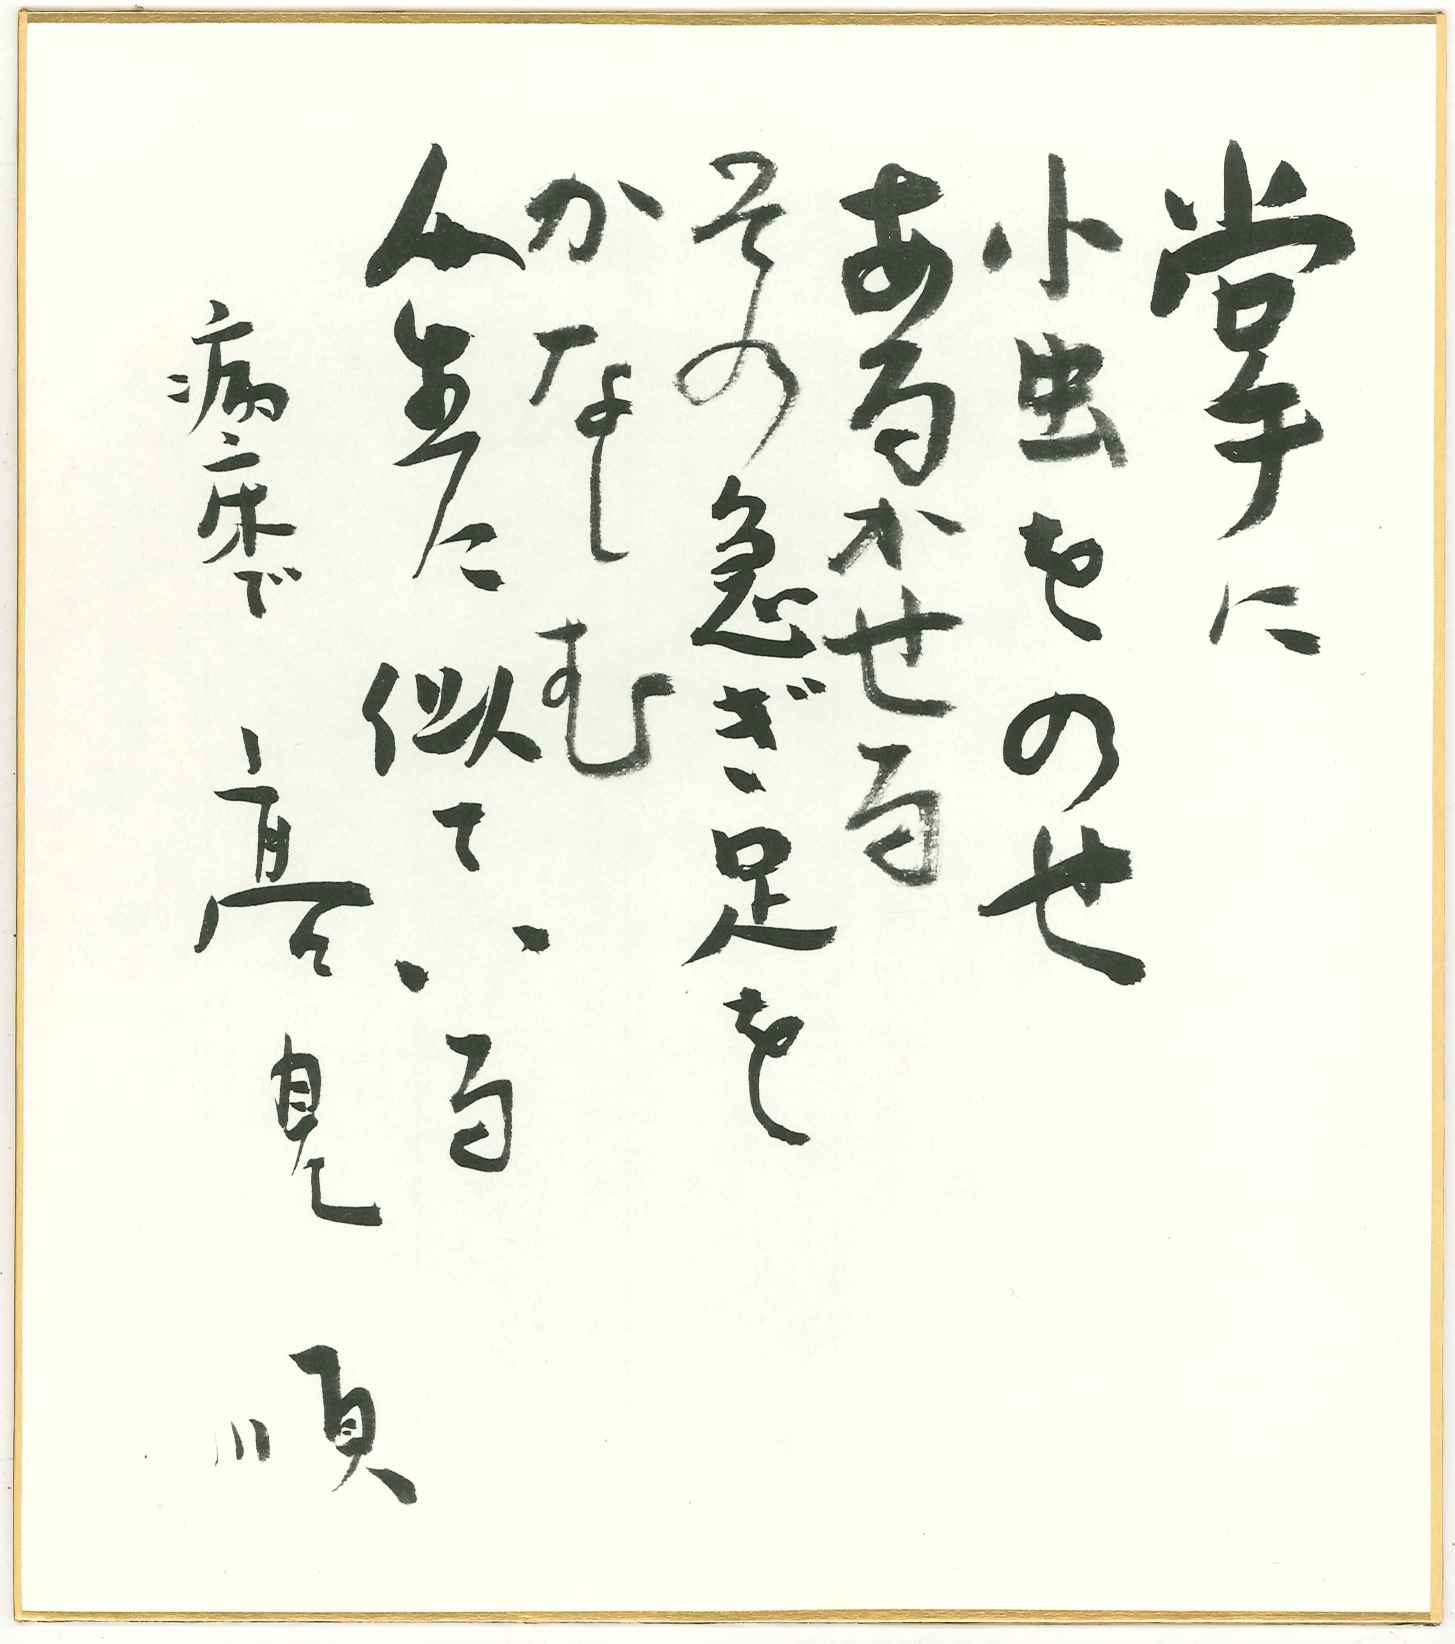 掌に
小虫をのせ
あるかせる
その急ぎ足を
かなしむ
人生に似ている
病床で
高見順